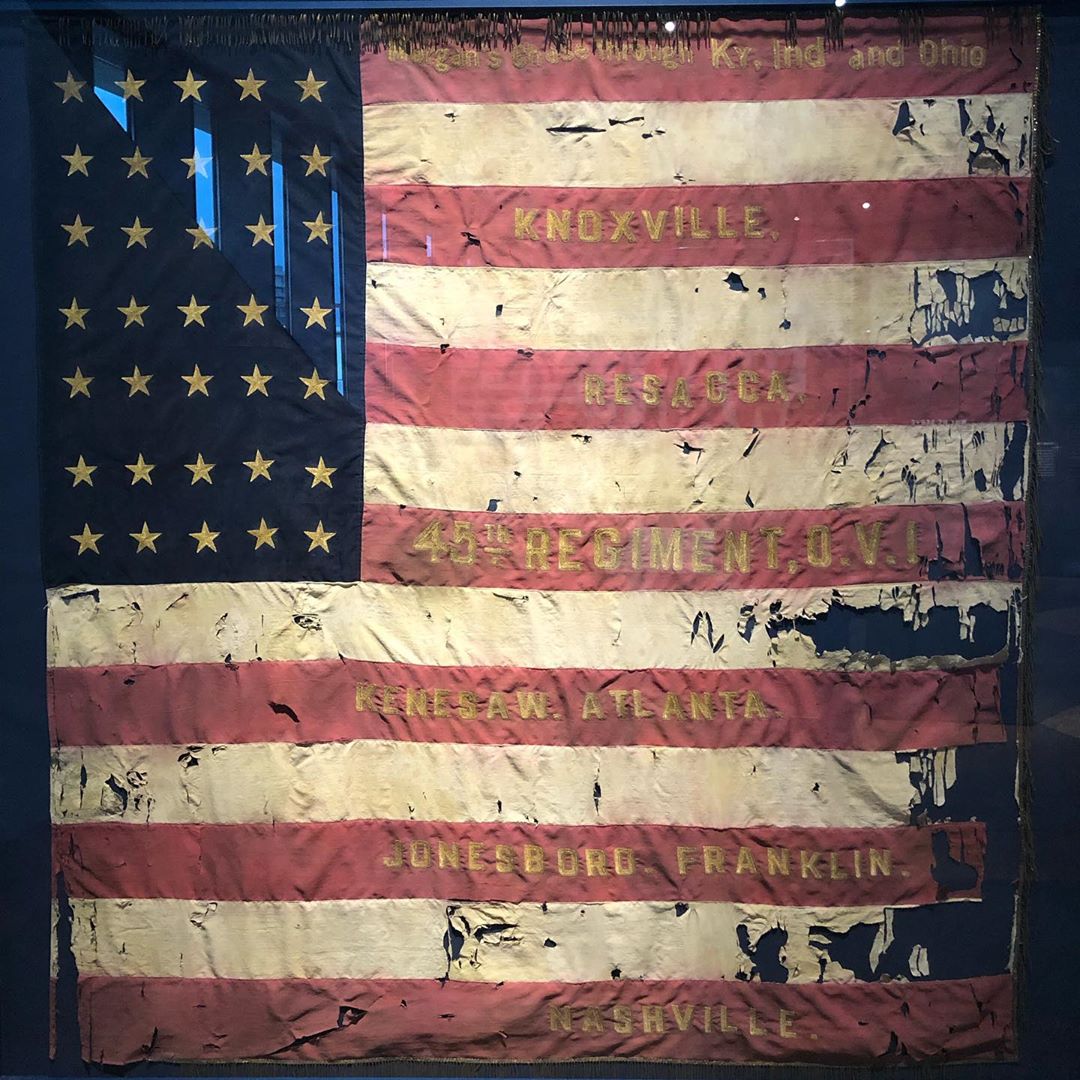 Morgan's Chase through Ky, Ind and Ohio
KNOXVILLE,
RESACCA.
45TH REGIMENT, O.V.I
KENESAW. ATLANTA.
JONESBORO. FRANKLIN.
NASHVILLE.